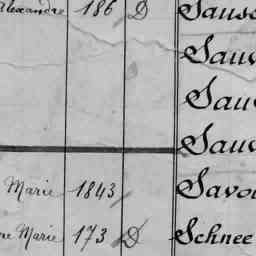 Alexandre 186 D Sauss
Sauv
Sauv
Sauv
Marie 1843 Savoi
ne Marie 173 D Schnee